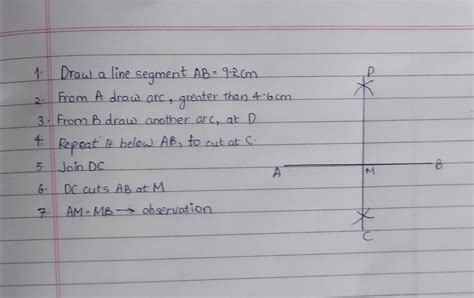 1. Draw a line segment AB = 9.2cm
2. From A draw arc, greater than 4.6cm
3. From B draw another arc, at D
4. Repeat it below AB, to cut at C.
5. Join DC
6. DC cuts AB at M
7. AM = MB → observation
D
A
M
B
C